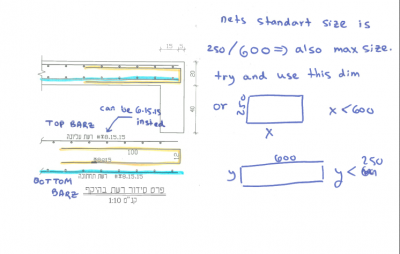 nets standart size is
250/600 => also max size.
try and use this dim
or 250 x < 600
x
600
y y < 250
15
20
45
can be 6.15.15
insted
TOP BARZ
רשת עליונה #8.15.15
100
12
רשת תחתונה #8.15.15
BOTTOM
BARZ
פרט סידור רשת בהיקף
קנ"מ 1:10